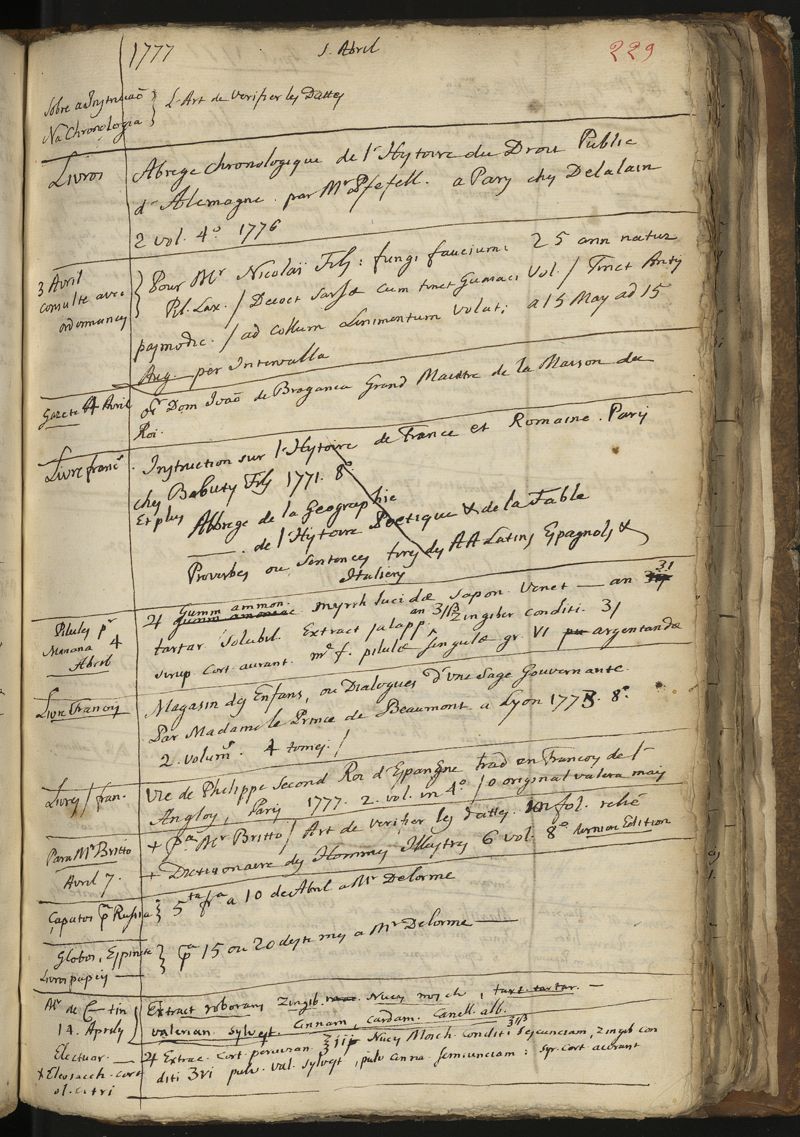 1777 1. Abril 229
Sobre a Instrucaõ
Na Chronologia } L'Art de Verifier les Dattes
Livros
Abregé Chronologique de l'Hystoire du Droit Public
d'Alemagne. par Mr Pfefell. a Paris chez Delalain
2 vol. 4º 1776
3 Avril
consulte avec
ordonnances
Pour Mr Nicolaï Fils: fungi faucium: 25 ann natus
Pil. Lax. / Decoct Sarsae cum tinct Gumaci Vol. / Tinct Anty
pasmodic. / ad Collum Linimentum Volat: a 15 May ad 15
Aug. per Intervalla
Gazete 4 Avril
Sr Dom Ivaõ de Braganca Grand Maistre de la Maison du
Roi.
Livre franc.
Instruction sur l'Hystoire de France et Romaine. Paris
chez Babuty Fils 1771. 8º
Et plus Abbrege de la Geographie
de l'Hystoire Poetique & de la Fable
Proverbes ou Sentences tires des AA Latins Espagnols &
Italiens
Pilules pr
4
Abril
Gumm ammon.
♃ gumm amoniac myrrh lucidae Sapon Venet — an 31
tartar Solubil. Extract jalapp. an 3iß Zingiber Conditi. 3j
sirup Cort. aurant. m. f. pilulae singulae gr. VI argentandae
Livre Francois
Magasin des Enfans, ou Dialogues d'une Sage Gouvernante.
Par Madame le Prince de Beaumont a Lyon 1773. 8º
2. Volums. 4 tomes. /
Livres / fran.
Vie de Philippe Second Roi d'Espangne trad en Francois de l'
Anglois, Paris 1777. 2. vol. in 4º / o original valera mais
Para Mr Britto
Avril 7.
+ Pa Mr Britto / Art de verifier les dattes. In fol. relié
+ Dictionaire des Hommes Illustres 6 vol. 8º derniere Edition
Capatos pa Russia } 5ta fra 10 de Abril a Mr Delorme
Globos, Espincte
Livros papeis } pa 15 ou 20 deste mes a Mr Delorme —
Mr de C— tin
14. Aprilis
Extract roborans Zingib. Nucis mosch, tart. tartar. —
valerian sylvest. Cinnam, cardam. Canell. alb.
Electuar. —
♃ Extrac. Cort peruvian ʒiij Nucis Mosch. Conditi 3iß sescunciam, zingib con
+ Eleosacch. cort
ol. citri
diti 3vi pulv. val. sylvest, pulv cinna. semiunciam: syr. cort aurant